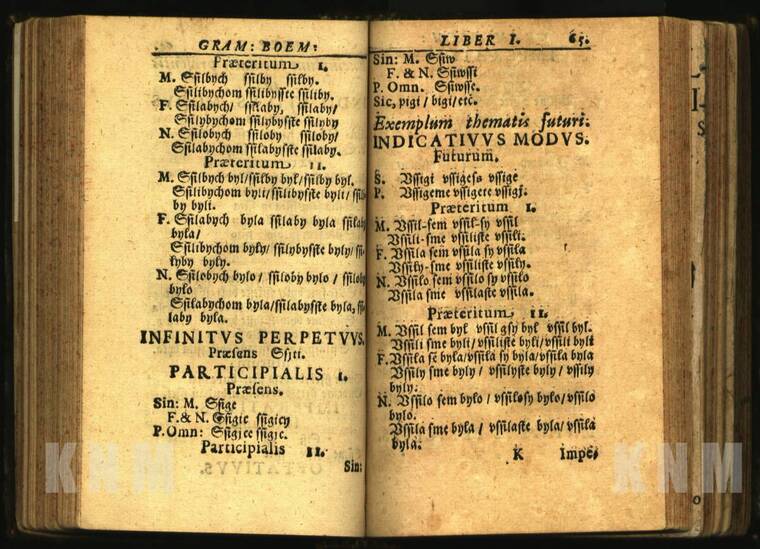 GRAM: BOEM:
Præteritum I.
M. Sſilbych ſſilby ſſilby.
Sſilibychom ſſilibyſſte ſſiliby.
F. Sſilabych/ ſſilaby, ſſilaby/
Sſilybychom ſſilybyſſte ſſilyby
N. Sſilobych ſſiloby ſſiloby/
Sſilabychom ſſilabyſſte ſſilaby.
Præteritum II.
M. Sſilbych byl/ſſilby byl/ſſilby byl.
Sſilibychom byli/ſſilibyſſte byli/ ſſili
by byli.
F. Sſilabych byla ſſilaby byla ſſilaby
byla/
Sſilibychom byly/ ſſilybyſſte byly/ſſi
lyby byly.
N. Sſilobych bylo/ ſſiloby bylo / ſſiloby
bylo
Sſilabychom byla/ſſilabyſſte byla, ſſi
laby byla.
INFINITVS PERPETVVS.
Præſens Sſyti.
PARTICIPIALIS I.
Præſens.
Sin: M. Sſige
F. & N. Sſigic ſſigicy
P. Omn: Sſigjce ſſigjc.
Participialis II.
Sin:
LIBER I. 65.
Sin: M. Sſiw
F. & N. Sſiwſſi
P. Omn. Sſiwſſe.
Sic, pigi / bigi/ etc.
Exemplum thematis futuri.
INDICATIVVS MODVS.
Futurum.
S. Vſſigi vſſigeſs vſſige
P. Vſſigeme vſſigete vſſigj.
Præteritum I.
M. Vſſil-ſem vſſil-ſy vſſil
Vſſili-ſme vſſiliſte vſſili.
F. Vſſila ſem vſſila ſy vſſila
Vſſily-ſme vſſiliſte vſſily.
N. Vſſilo ſem vſſilo ſy vſſilo
Vſſila ſme vſſilaſte vſſila.
Præteritum II.
M. Vſſil ſem byl vſſil gſy byl vſſil byl.
Vſſili ſme byli/ vſſiliſte byli/ vſſili byli
F. Vſſila ſe byla/vſſila ſy byla/vſſila byla
Vſſily ſme byly / vſſilyſte byly / vſſily
byly.
N. Vſſilo ſem bylo / vſſiloſy bylo/vſſilo
bylo.
Vſſila ſme byla / vſſilaſte byla/ vſſila
byla.
K Impe,
KNM
KNM